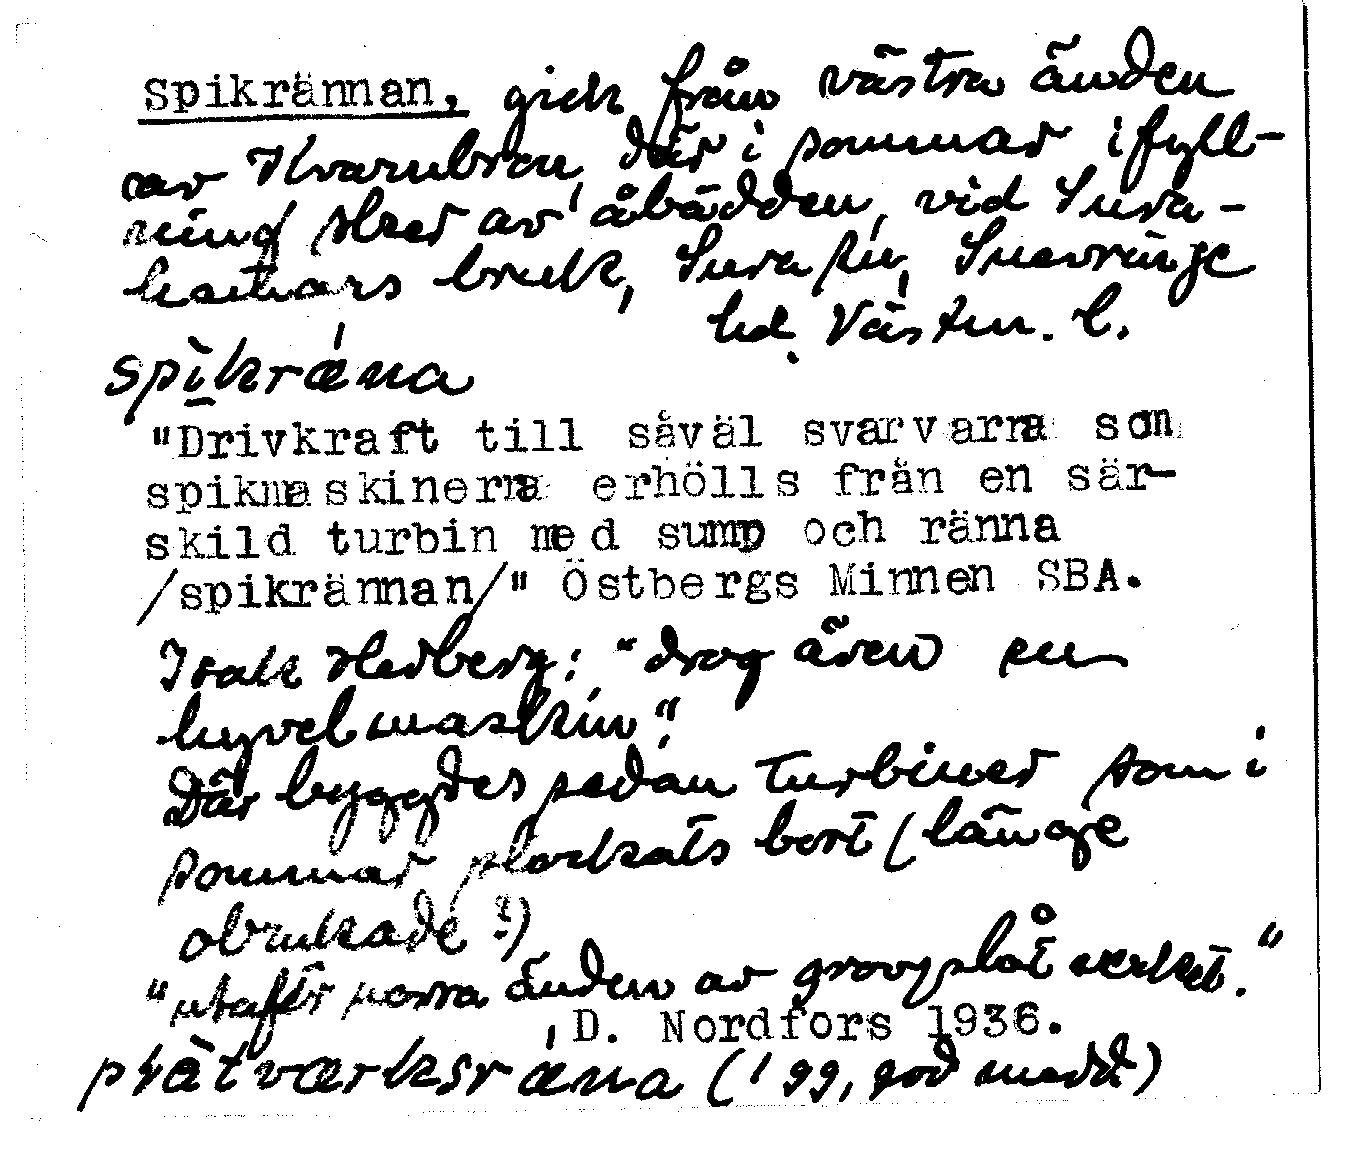 Spikrännan, gick från västra änden
av Kvarnbron, där i sommar ifyll-
ning sker av åbädden, vid Sura-
hammars bruk, Sura sn, Snevringe
hd. Västm. l.
spikräna
"Drivkraft till såväl svarvarna som
spikmaskinerna erhölls från en sär-
skild turbin med sump och ränna
/spikrännan/" Östbergs Minnen SBA.
Isak Hedberg: "drog även en
hyvelmaskin".
Där byggdes sedan turbiner som i
sommar plockats bort (länge
obrukade?)
"utaför norra änden av grovplåtverket."
D. Nordfors 1936.
plåtværksræna ( gg, god medd)